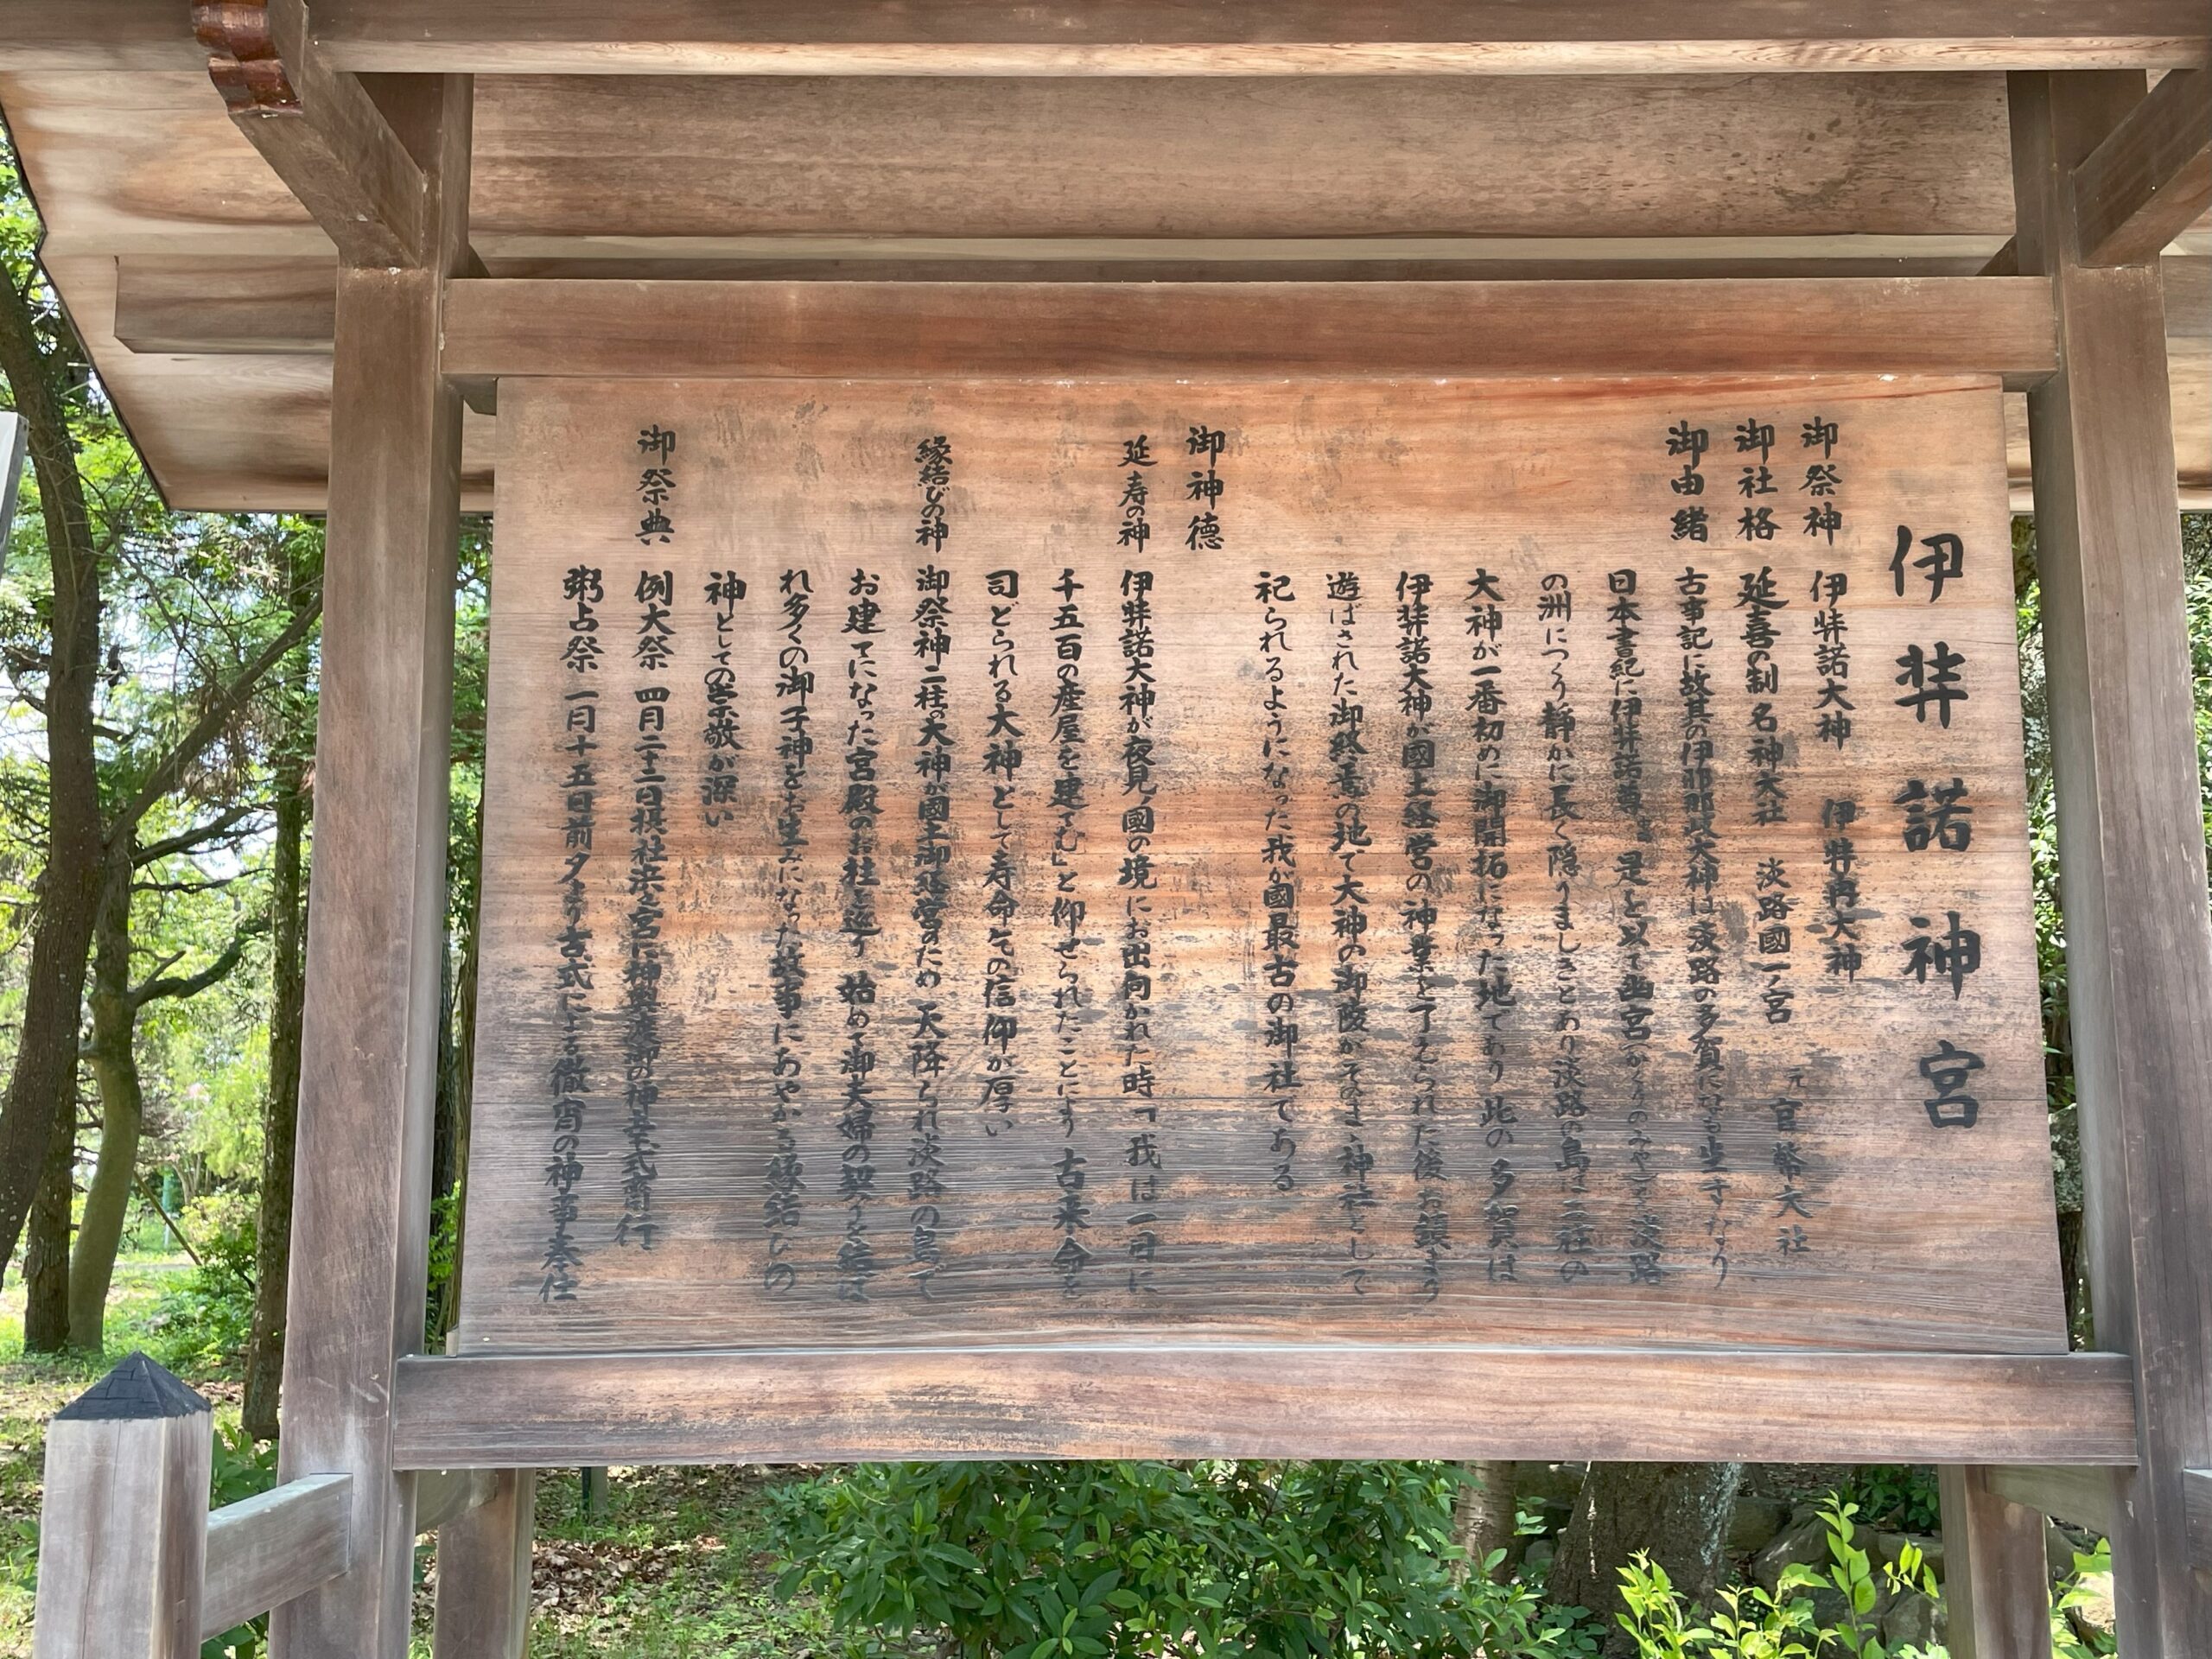 伊弉諾神宮
御祭神 伊弉諾大神 伊弉冉大神
御社格 延喜の制 名神大社 淡路國一ノ宮 元官幣大社
御由緒 古事記に故其の伊耶那岐大神は淡路の多賀になも坐すなり
日本書紀に伊弉諾尊 是を以て幽宮(かくりのみや)を淡路
の洲につくり静かに長く隠りましきとあり淡路の島は二柱の
大神が一番初めに御開拓になった地であり此の多賀は
伊弉諾大神が國土経営の神業を了えられた後お鎮まり
遊ばされた御終焉の地で大神の御陵がそのまゝ神社として
祀られるようになった我が國最古の御社である
御神徳
延寿の神 伊弉諾大神が夜見ノ國の境にお出向かれた時「我は一日に
千五百の産屋を建てむ」と仰せられたことにより古来命を
司どられる大神として寿命乞の信仰が厚い
縁結びの神 御祭神二柱の大神が國土御経営のため天降られ淡路の島で
お建てになった宮殿のお柱を巡り始めて御夫婦の契りを結ば
れ多くの御子神をお生みになった故事にあやかる縁結びの
神としての崇敬が深い
御祭典 例大祭 四月二十二日摂社濱乃宮に神輿渡御の神幸式斎行
粥占祭 一月十五日前夕より古式による徹宵の神事奉仕